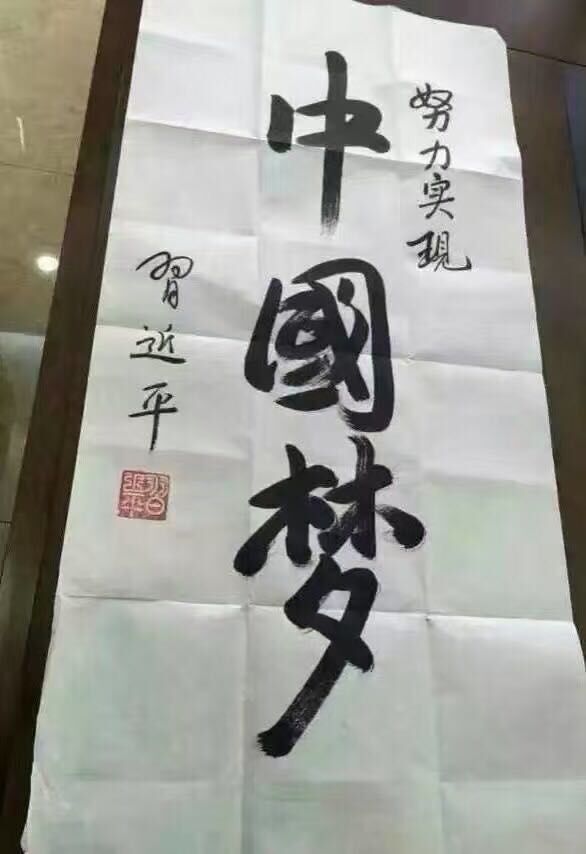 努力实現
中國梦
習近平
習近平